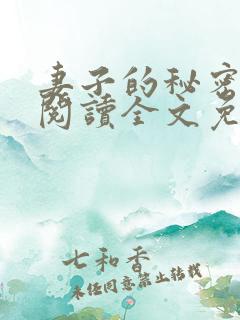 妻子的秘密
閱讀全文免
七和香
未經同意禁止轉載